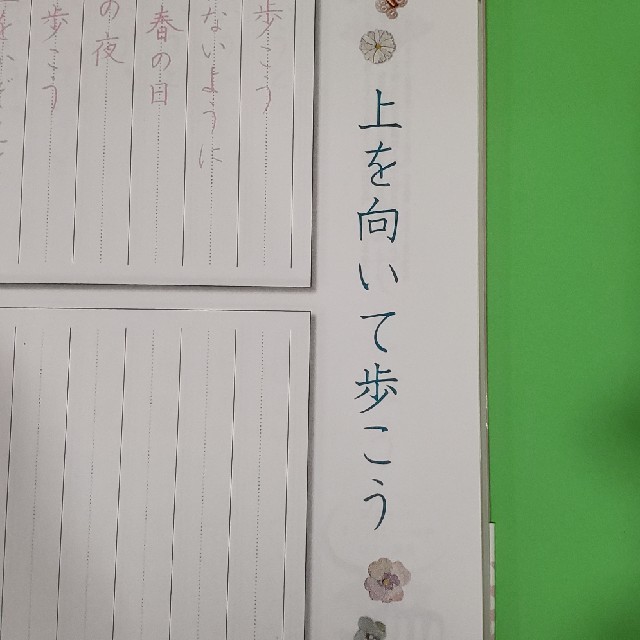 上を向いて歩こう
歩こう
ないように
春の日
の夜
歩こう